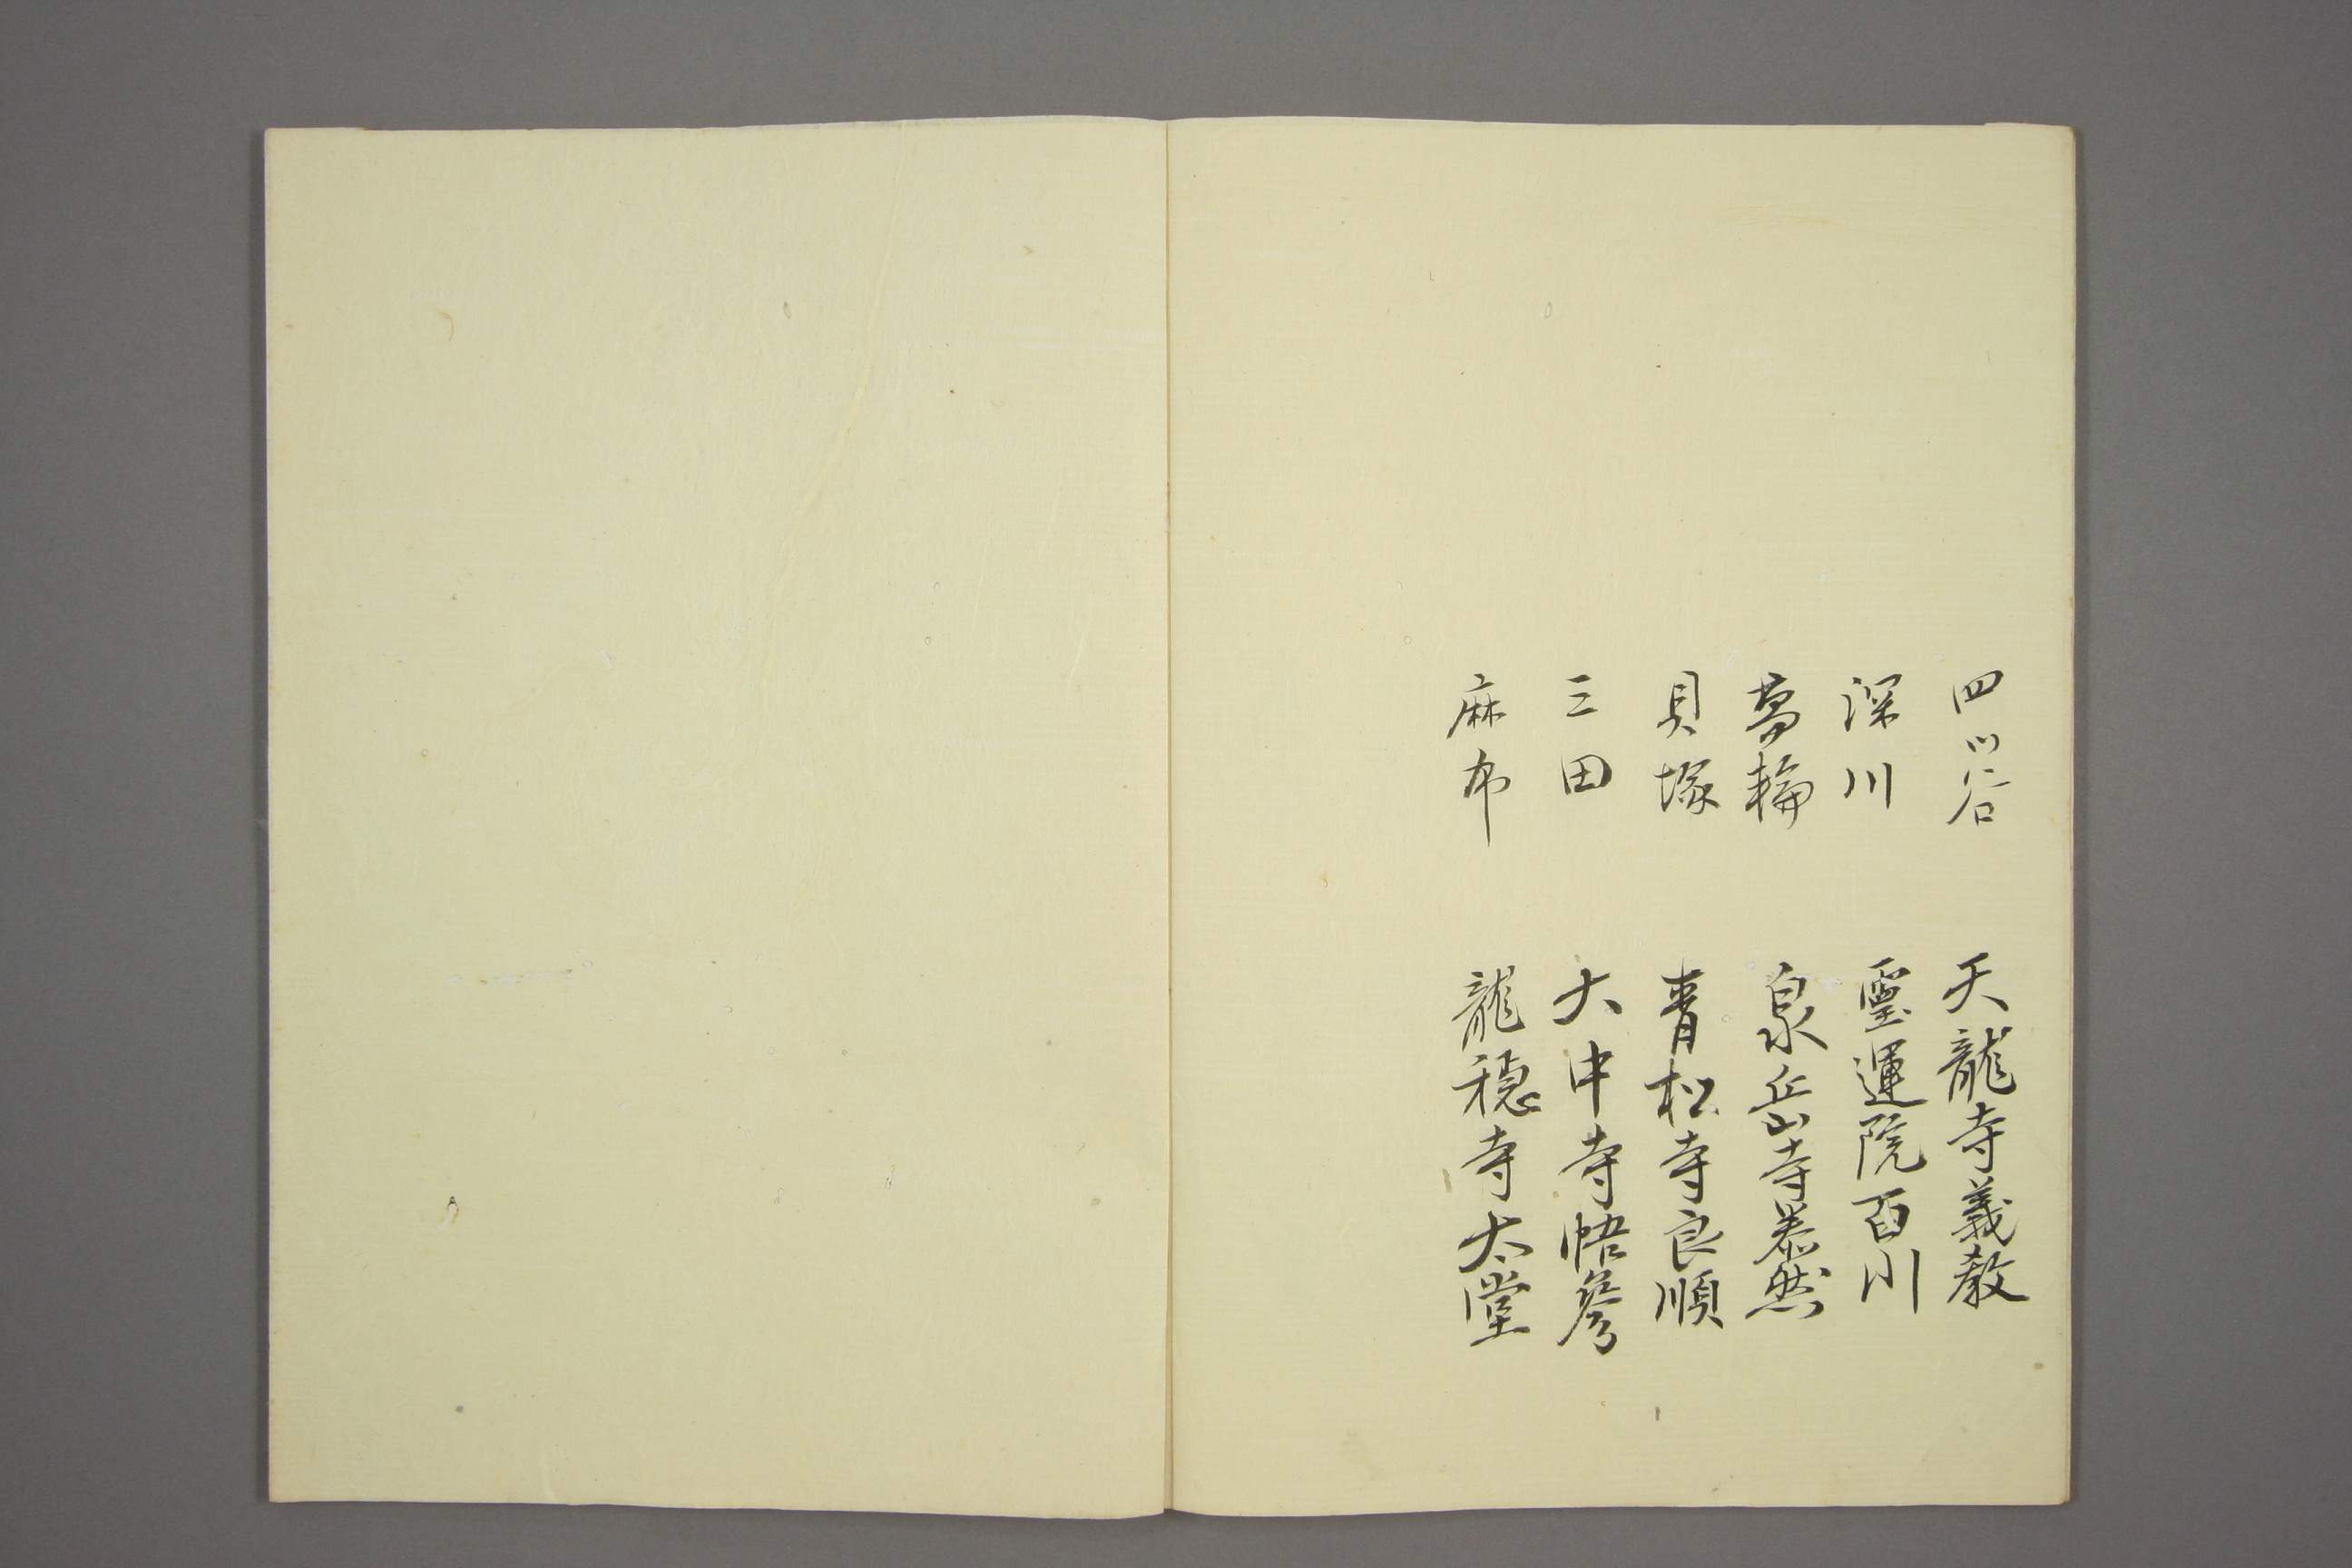 四ツ谷 天龍寺義教
深川 靈運院百川
高輪 泉岳寺恭然
貝塚 青松寺良順
三田 大中寺悟峯
麻布 龍穏寺太堂